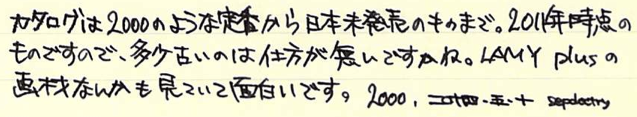 カタログは2000のような定番から日本未発売のものまで。2011年時点の
ものですので、多少古いのは仕方が無いですかね。LAMY plusの
画材なんかも見ていて面白いです。2000,